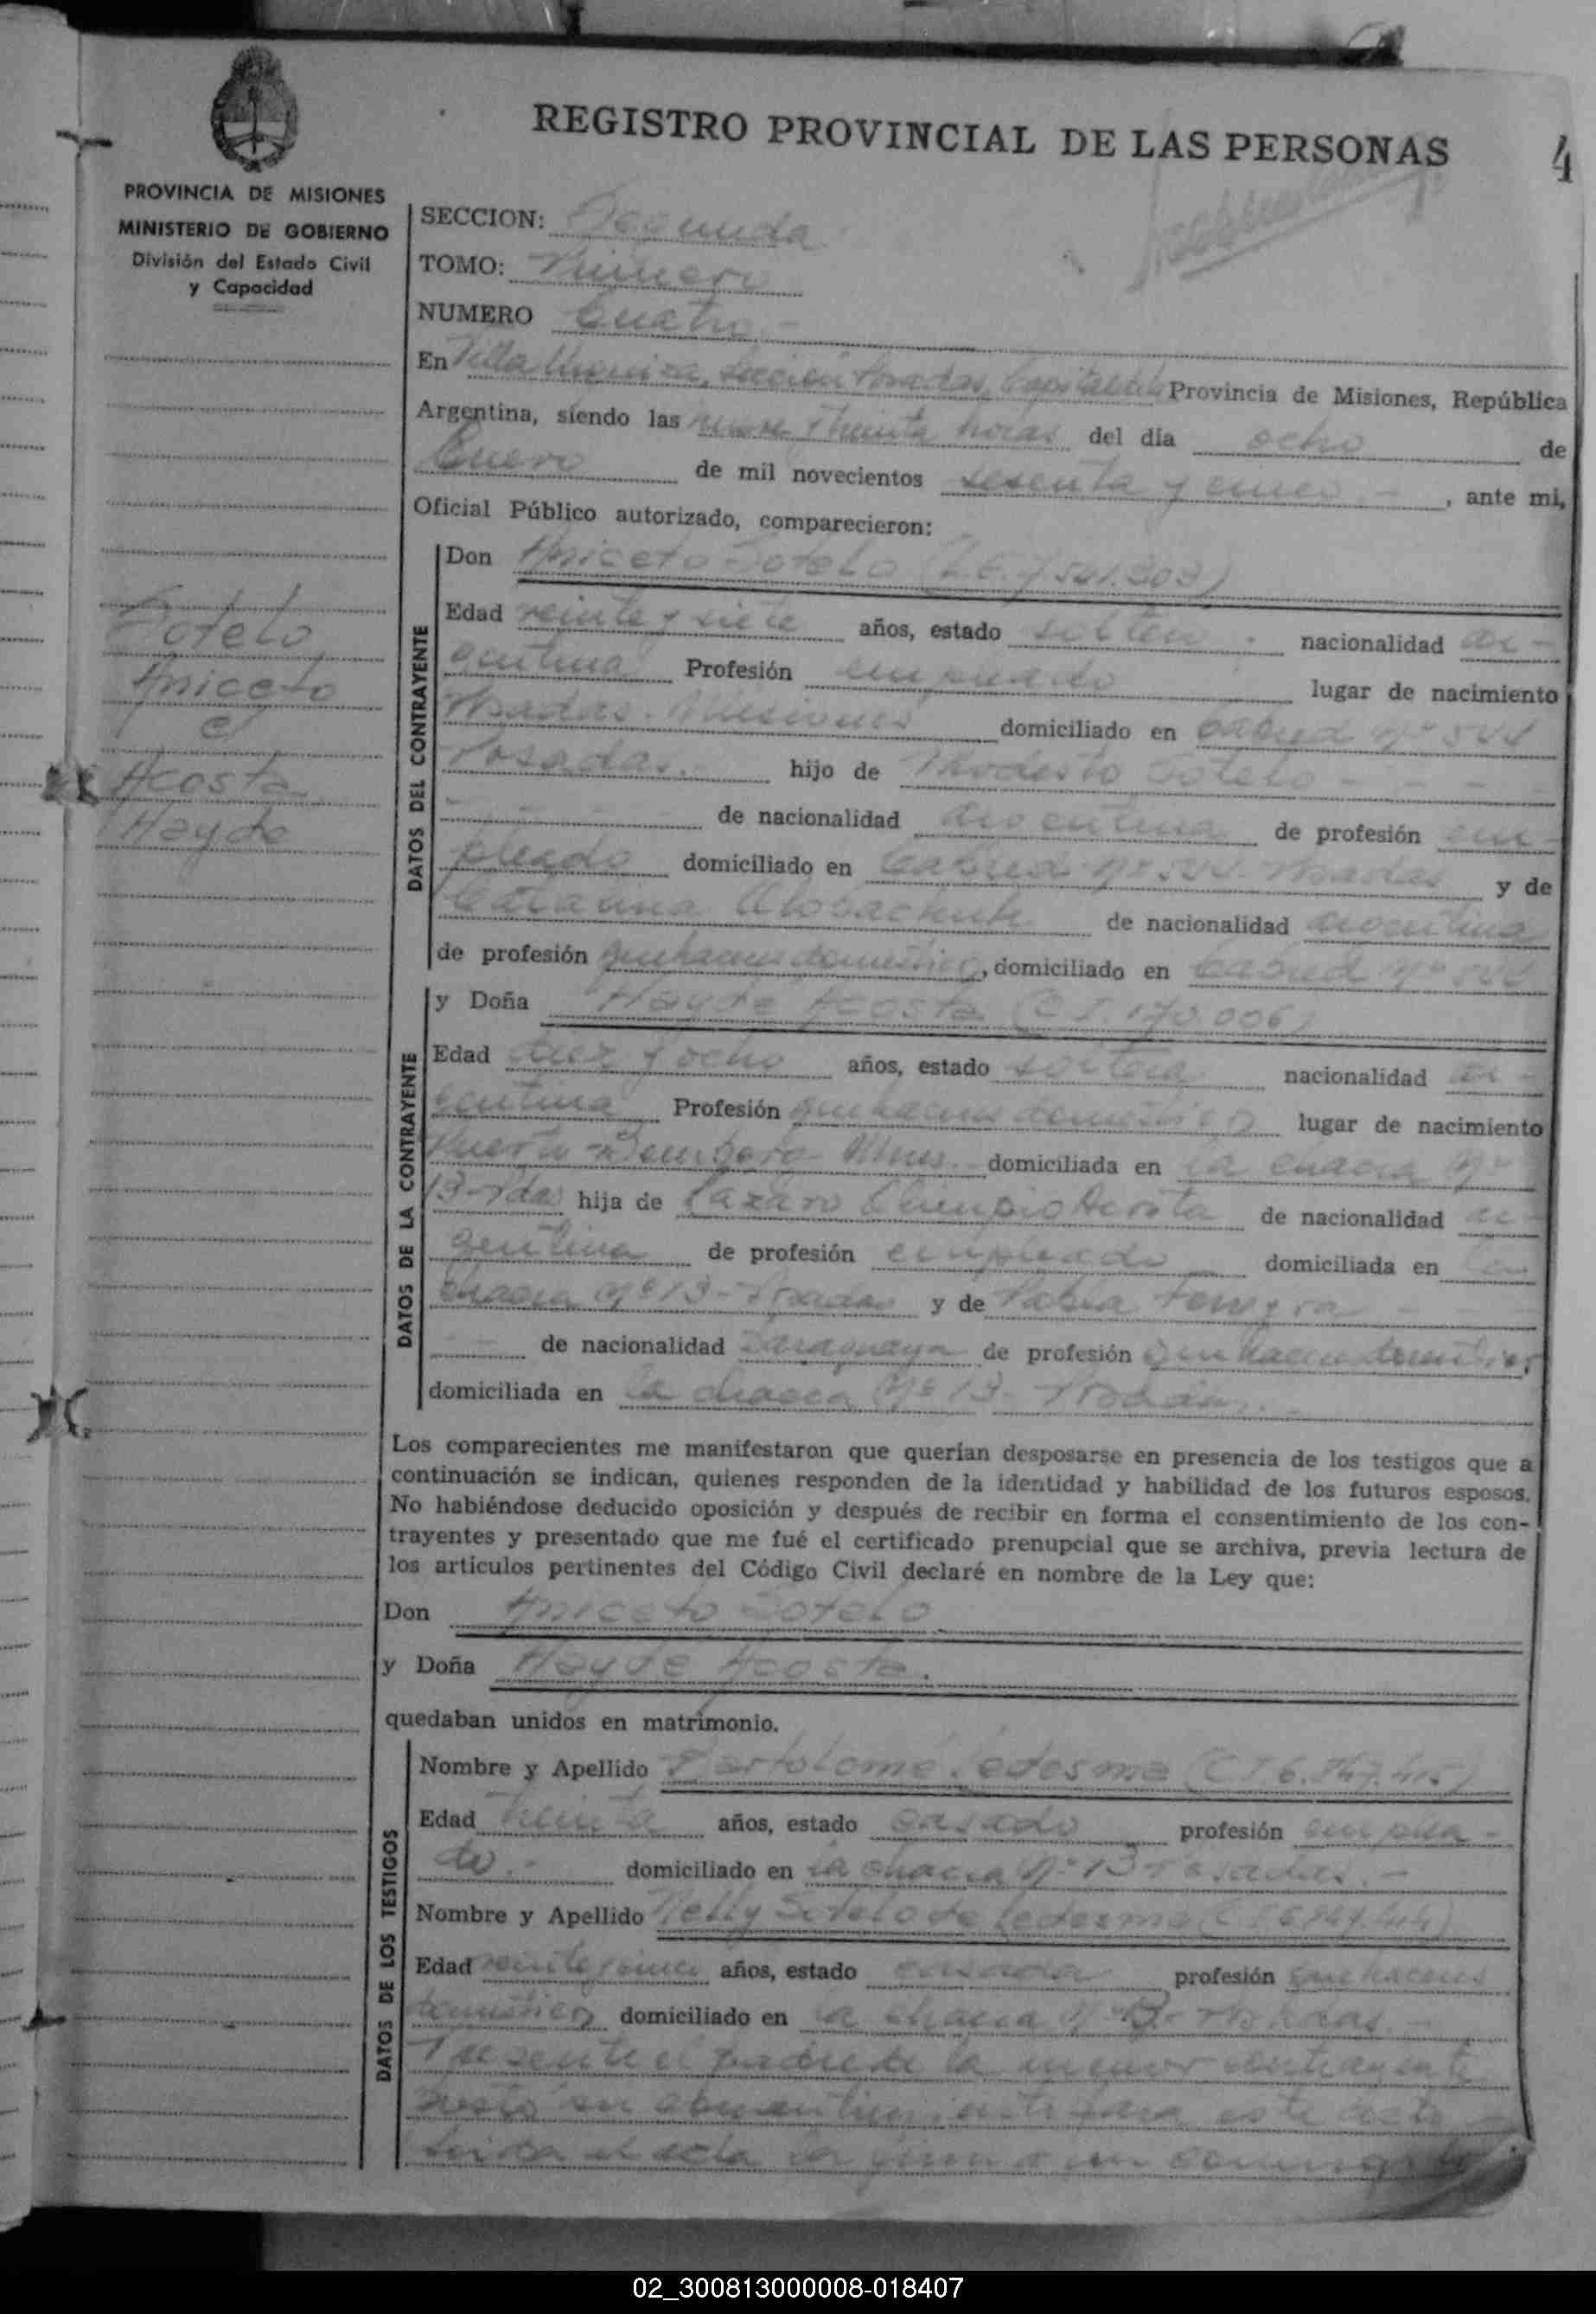 REGISTRO PROVINCIAL DE LAS PERSONAS
4
PROVINCIA DE MISIONES
MINISTERIO DE GOBIERNO
División del Estado Civil
y Capacidad
SECCION: Segunda
TOMO: Primero
NUMERO Cuatro.-
En Villa Urquiza, Sección Posadas, Capital de la Provincia de Misiones, República
Argentina, siendo las nueve y treinta horas del día ocho de
Enero de mil novecientos sesenta y cinco.- , ante mi,
Oficial Público autorizado, comparecieron:
Sotelo
Aniceto
c/
Acosta
Hayde
DATOS DEL CONTRAYENTE
Don Aniceto Sotelo (L.E. 7.541.303)
Edad veinte y siete años, estado soltero.- nacionalidad ar-
gentina Profesión empleado lugar de nacimiento
Posadas. Misiones domiciliado en Cabred Nº 544
Posadas. hijo de Modesto Sotelo - - - -
de nacionalidad argentina de profesión em-
pleado domiciliado en Cabred Nº 544. Posadas y de
Catalina de nacionalidad argentina
de profesión quehaceres domésticos, domiciliado en Cabred Nº 544
DATOS DE LA CONTRAYENTE
y Doña Hayde Acosta (C.I. 170.006)
Edad diez y ocho años, estado soltera nacionalidad ar-
gentina Profesión quehaceres domésticos lugar de nacimiento
Puerto domiciliada en la chacra Nº
13-Pdas hija de Lázaro Olimpio Acosta de nacionalidad ar-
gentina de profesión empleado domiciliada en la
chacra Nº 13 - Posadas y de Pabla Ferreyra - -
- - de nacionalidad paraguaya de profesión quehaceres domésticos,
domiciliada en la chacra Nº 13 - Posadas.-
Los comparecientes me manifestaron que querían desposarse en presencia de los testigos que a
continuación se indican, quienes responden de la identidad y habilidad de los futuros esposos.
No habiéndose deducido oposición y después de recibir en forma el consentimiento de los con-
trayentes y presentado que me fué el certificado prenupcial que se archiva, previa lectura de
los artículos pertinentes del Código Civil declaré en nombre de la Ley que:
Don Aniceto Sotelo
y Doña Hayde Acosta.
quedaban unidos en matrimonio.
DATOS DE LOS TESTIGOS
Nombre y Apellido Bartolomé Ledesma (C.I 6.747.415)
Edad treinta años, estado casado profesión emplea-
do.- domiciliado en la chacra Nº 13 Posadas.-
Nombre y Apellido Nelly Sotelo de Ledesma
Edad veinte y cinco años, estado casada profesión quehaceres
domésticos domiciliado en la chacra Nº 13. Posadas.-
Presente el padre de la menor contrayente
prestó su consentimiento para este acto
Leída el acta la firman conmigo
02_300813000008-018407